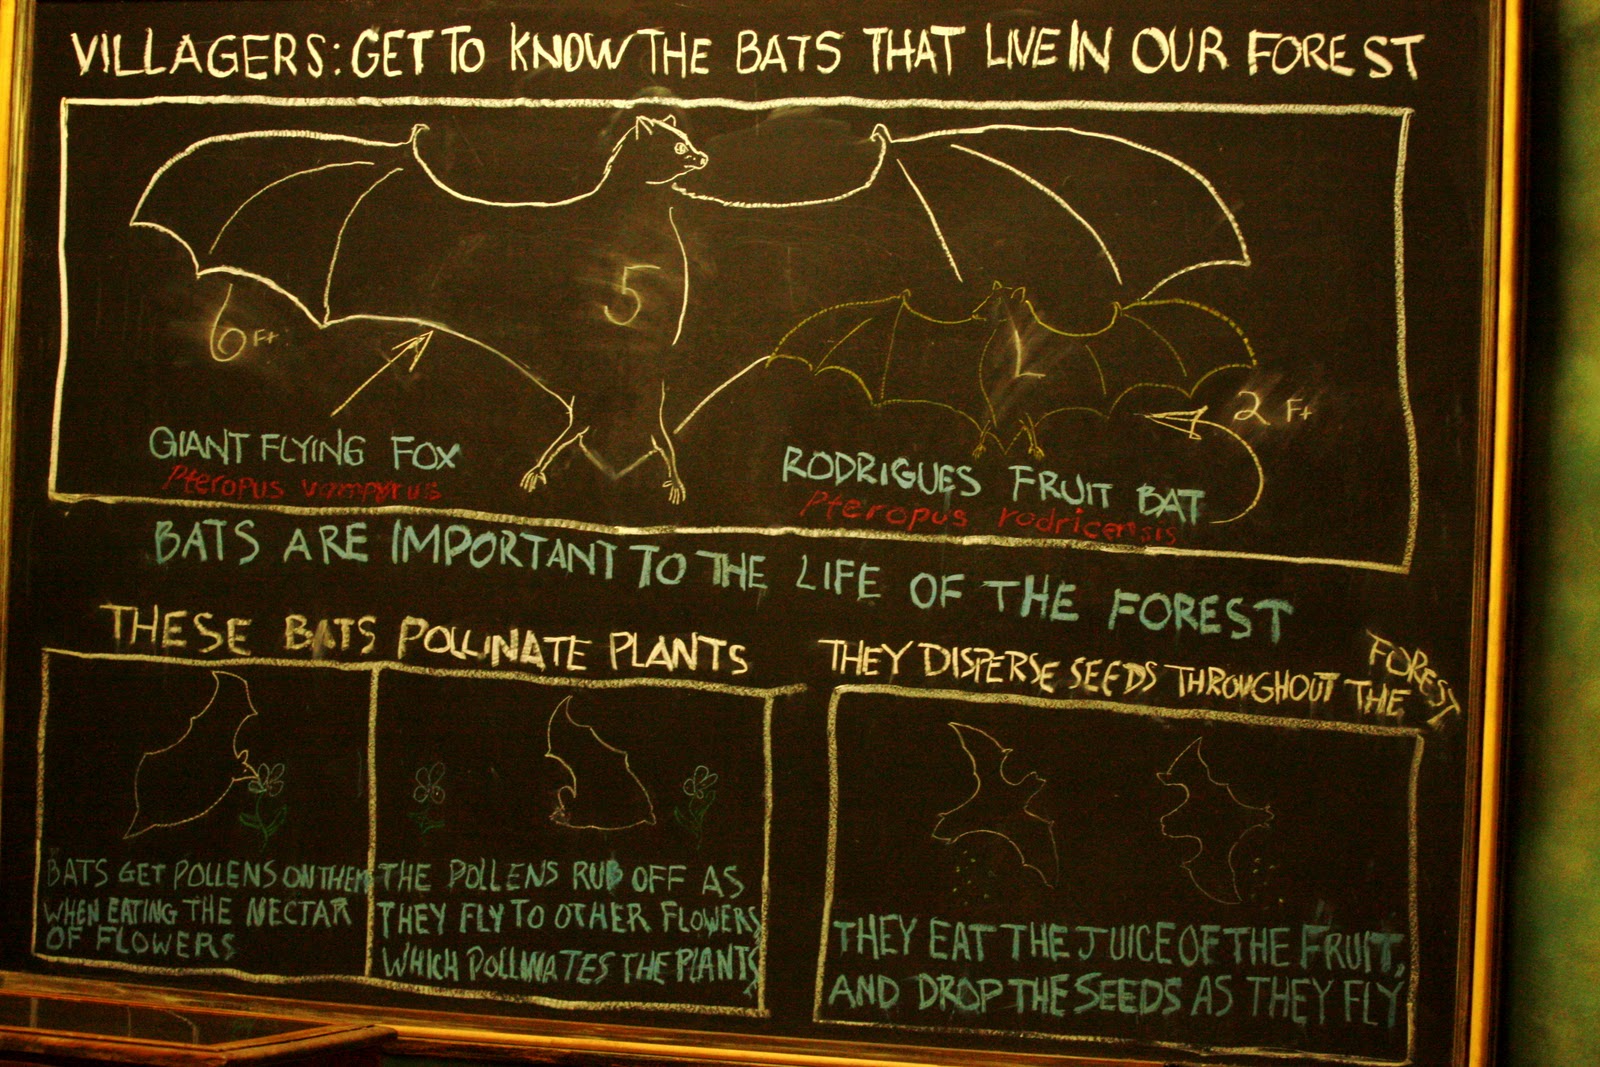 VILLAGERS: GET TO KNOW THE BATS THAT LIVE IN OUR FOREST
5
6 Ft
2 Ft
GIANT FLYING FOX
Pteropus vampyrus
RODRIGUES FRUIT BAT
Pteropus rodricensis
BATS ARE IMPORTANT TO THE LIFE OF THE FOREST
THESE BATS POLLINATE PLANTS
BATS GET POLLENS ON THEM
WHEN EATING THE NECTAR
OF FLOWERS
THE POLLENS RUB OFF AS
THEY FLY TO OTHER FLOWERS
WHICH POLLINATES THE PLANTS
THEY DISPERSE SEEDS THROUGHOUT THE FOREST
THEY EAT THE JUICE OF THE FRUIT,
AND DROP THE SEEDS AS THEY FLY